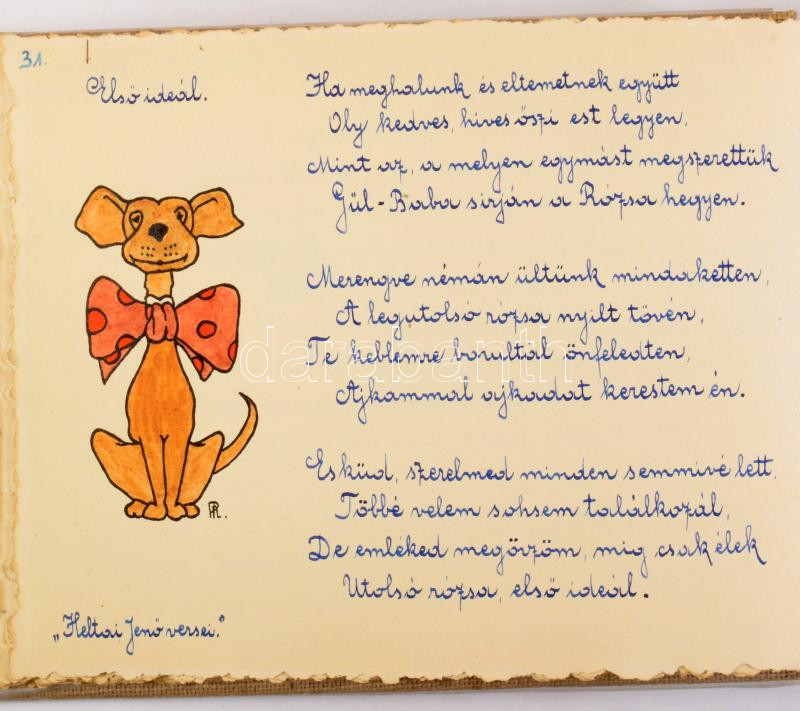 31.
Első ideál.
Ha meghalunk és eltemetnek együtt
Oly kedves, hives őszi est legyen,
Mint az, a melyen egymást megszerettük
Gül-Baba sirján a Rózsa hegyen.
Merengve némán ültünk mindaketten,
A legutolsó rózsa nyilt tövén,
Te keblemre borultál önfeledten,
Ajkammal ajkadat kerestem én.
Esküd, szerelmed minden semmivé lett,
Többé velem sohsem találkozál,
De emléked megőrzöm, mig csak élek
Utolsó rózsa, első ideál.
"Heltai Jenő versei."
darabanth